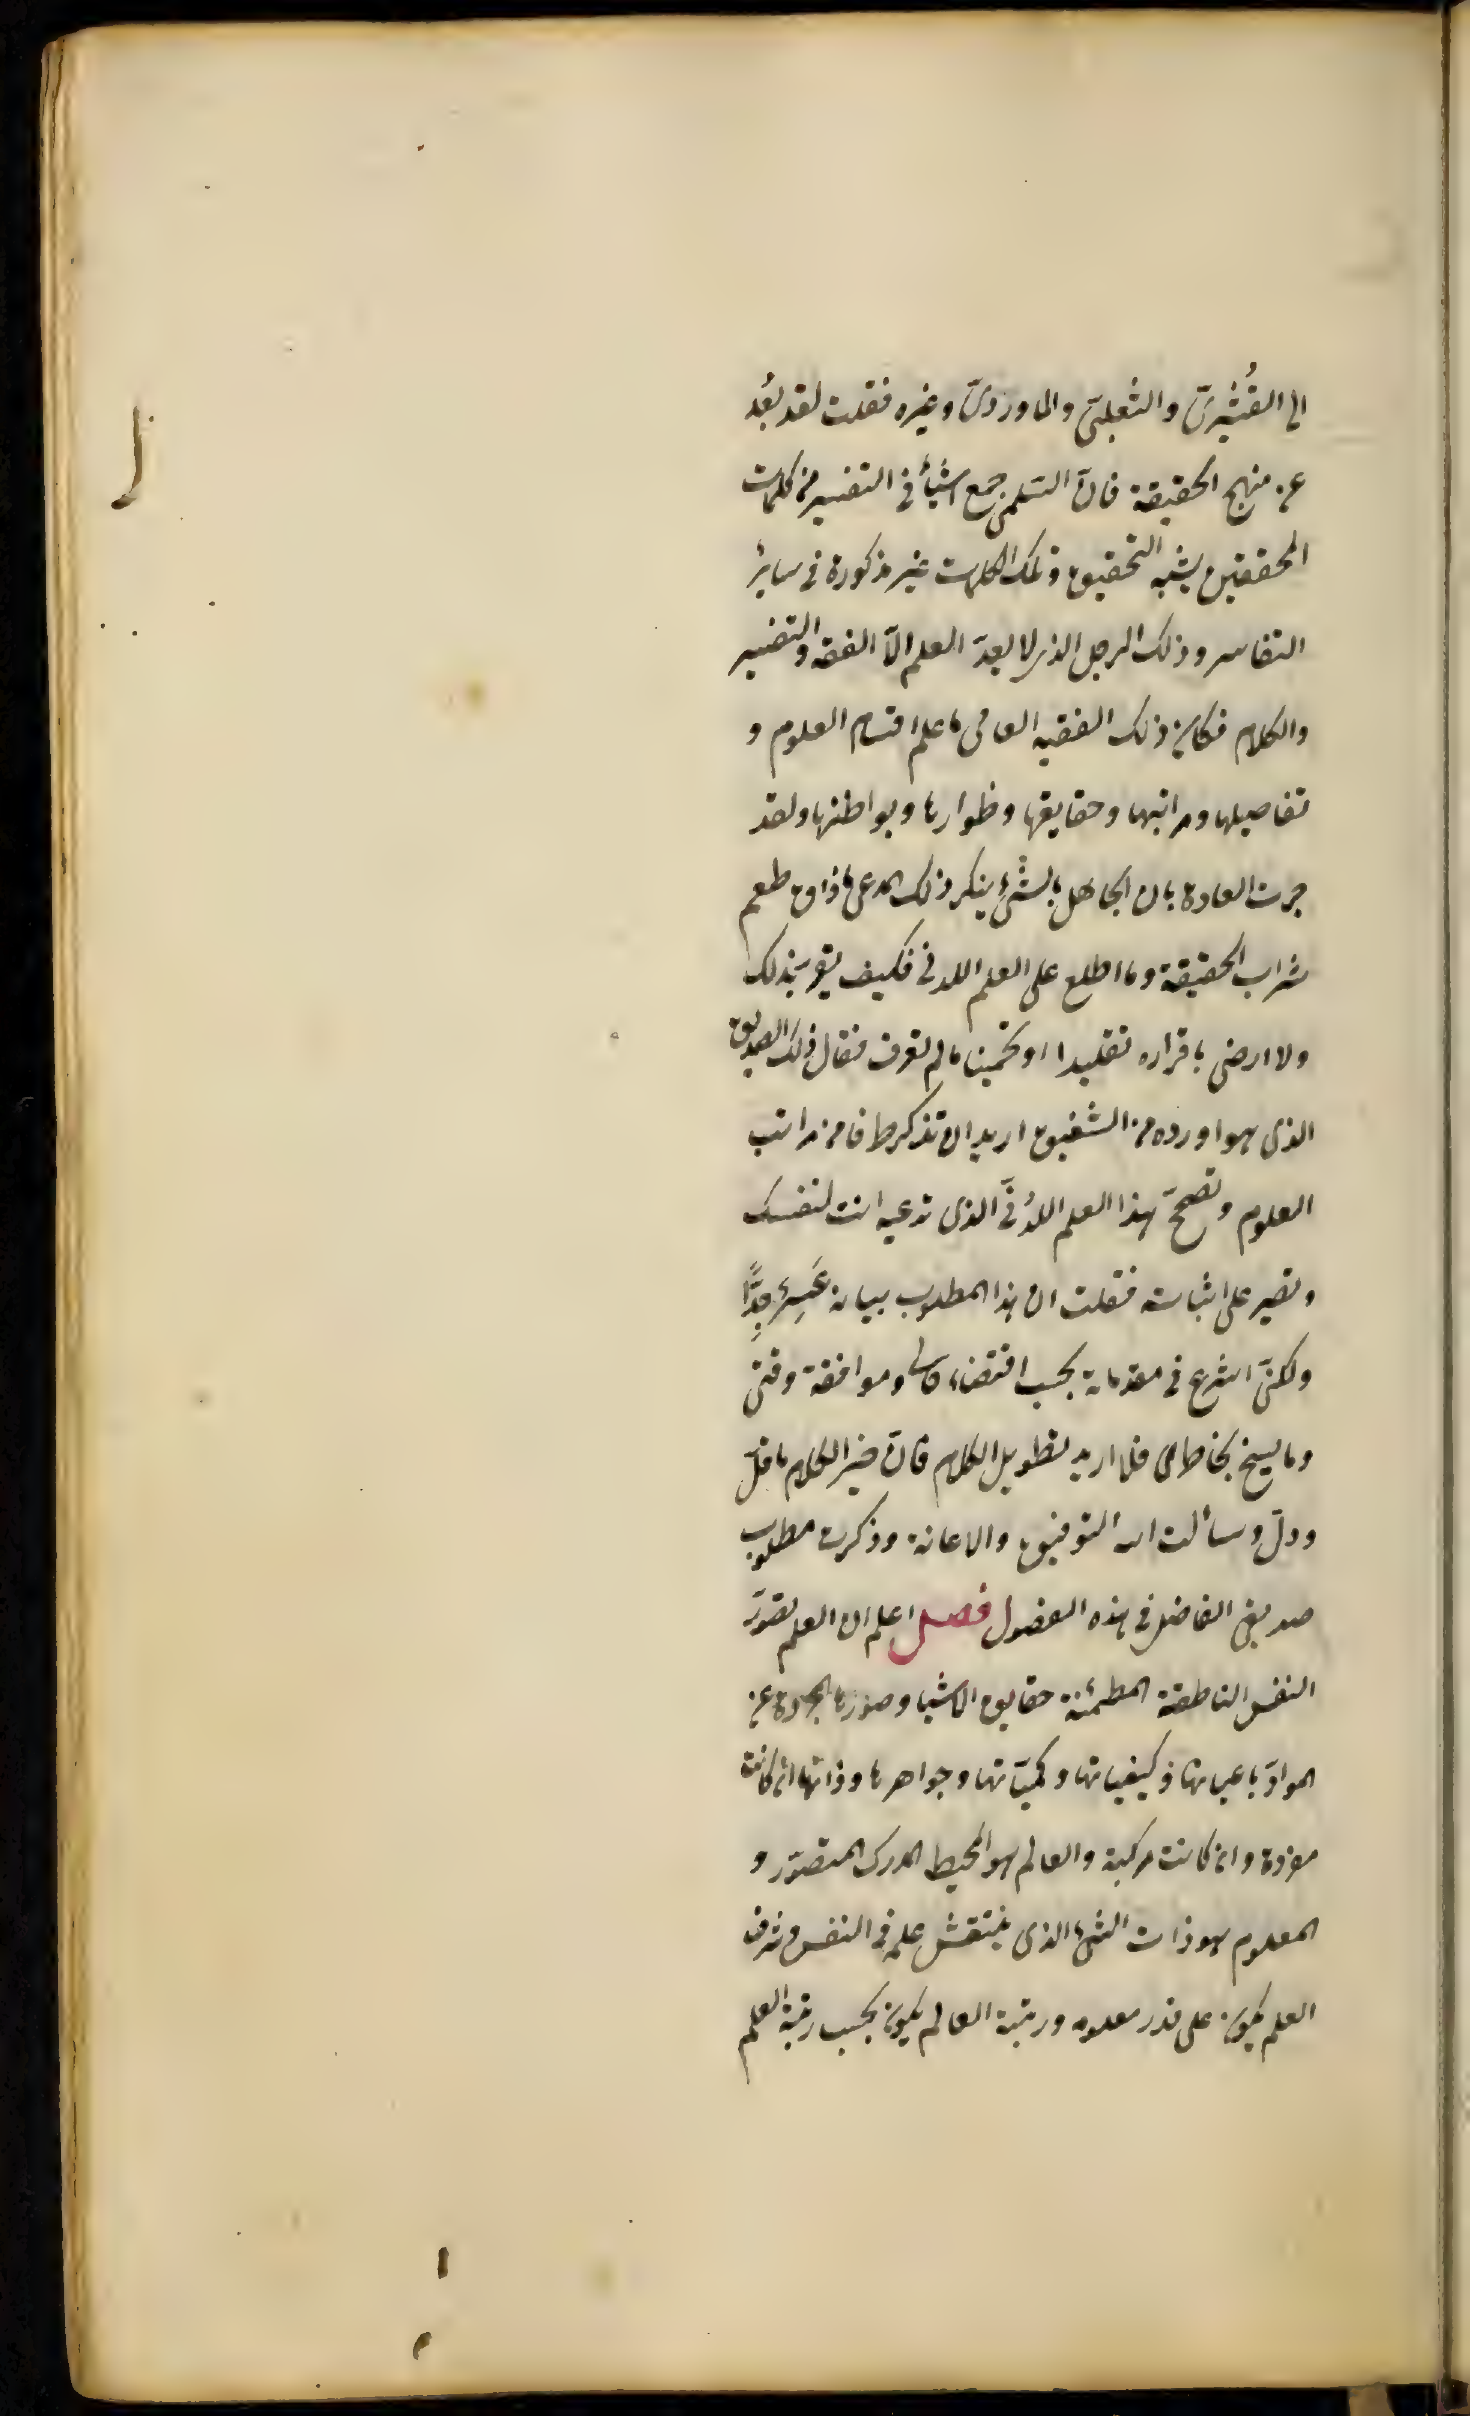 الى القُشَيْرىّ والثعلبىّ والماوردىّ وغيره فقلت لقد بعُد
عن منهج الحقيقة فانّ السّلمى جمع اشياءً فى التفسير من كلمات
المحققين يشبه التحقيق وتلك الكلمات غير مذكورة فى ساير
التفاسير وذلك الرجل الذى لا يعدّ العلم الّا الفقه والتفسير
والكلام فكان ذلك الفقيه العامى ما علم اقسام العلوم و
تفاصيلها ومراتبها وحقايقها وظواهرها وبواطنها ولقد
جرت العادة بان الجاهل بالشئ ينكر ذلك المدعى ما ذاق طعم
شراب الحقيقة وما اطلع على العلم اللدنى فكيف يقرّ بذلك
ولا ارضى باقراره تقليدا او تخمينا ما لم تعرف فقال ذلك الصديق
الذى هو اورده من الشفيق اريد ان تذكر طرفا من مراتب
العلوم وتصحّح هذا العلم اللّدُنّى الذى تدعيه انت لنفسك
وتصير على اثباته فقلت ان هذا المطلوب بيانه عَسِرٌ جِدًّا
ولكنّى اشرع فى مقدماته بحسب اقتضاء حالى وموافقة وقتى
وما يسنح بخاطرى فلا اريد تطويل الكلام فانّ خير الكلام ما قلّ
ودلّ وسألت الله التوفيق والاعانة وذكرت مطلوب
صديقى الفاضل فى هذه الفصول فصل اعلم ان العلم تصوّر
النفس الناطقة المطمئنة حقايق الاشيا وصورها المجردة عن
الموادّ باعيانها وكيفياتها وكميّاتها وجواهرها وذاتها ان كانت
مفردة وان كانت مركبة والعالم هو المحيط المدرك المتصوّر و
المعلوم هو ذات الشئ الذى ينتقش علمه فى النفس وشرف
العلم يكون على قدر معلومه ورتبة العالم يكون بحسب رتبة العلم